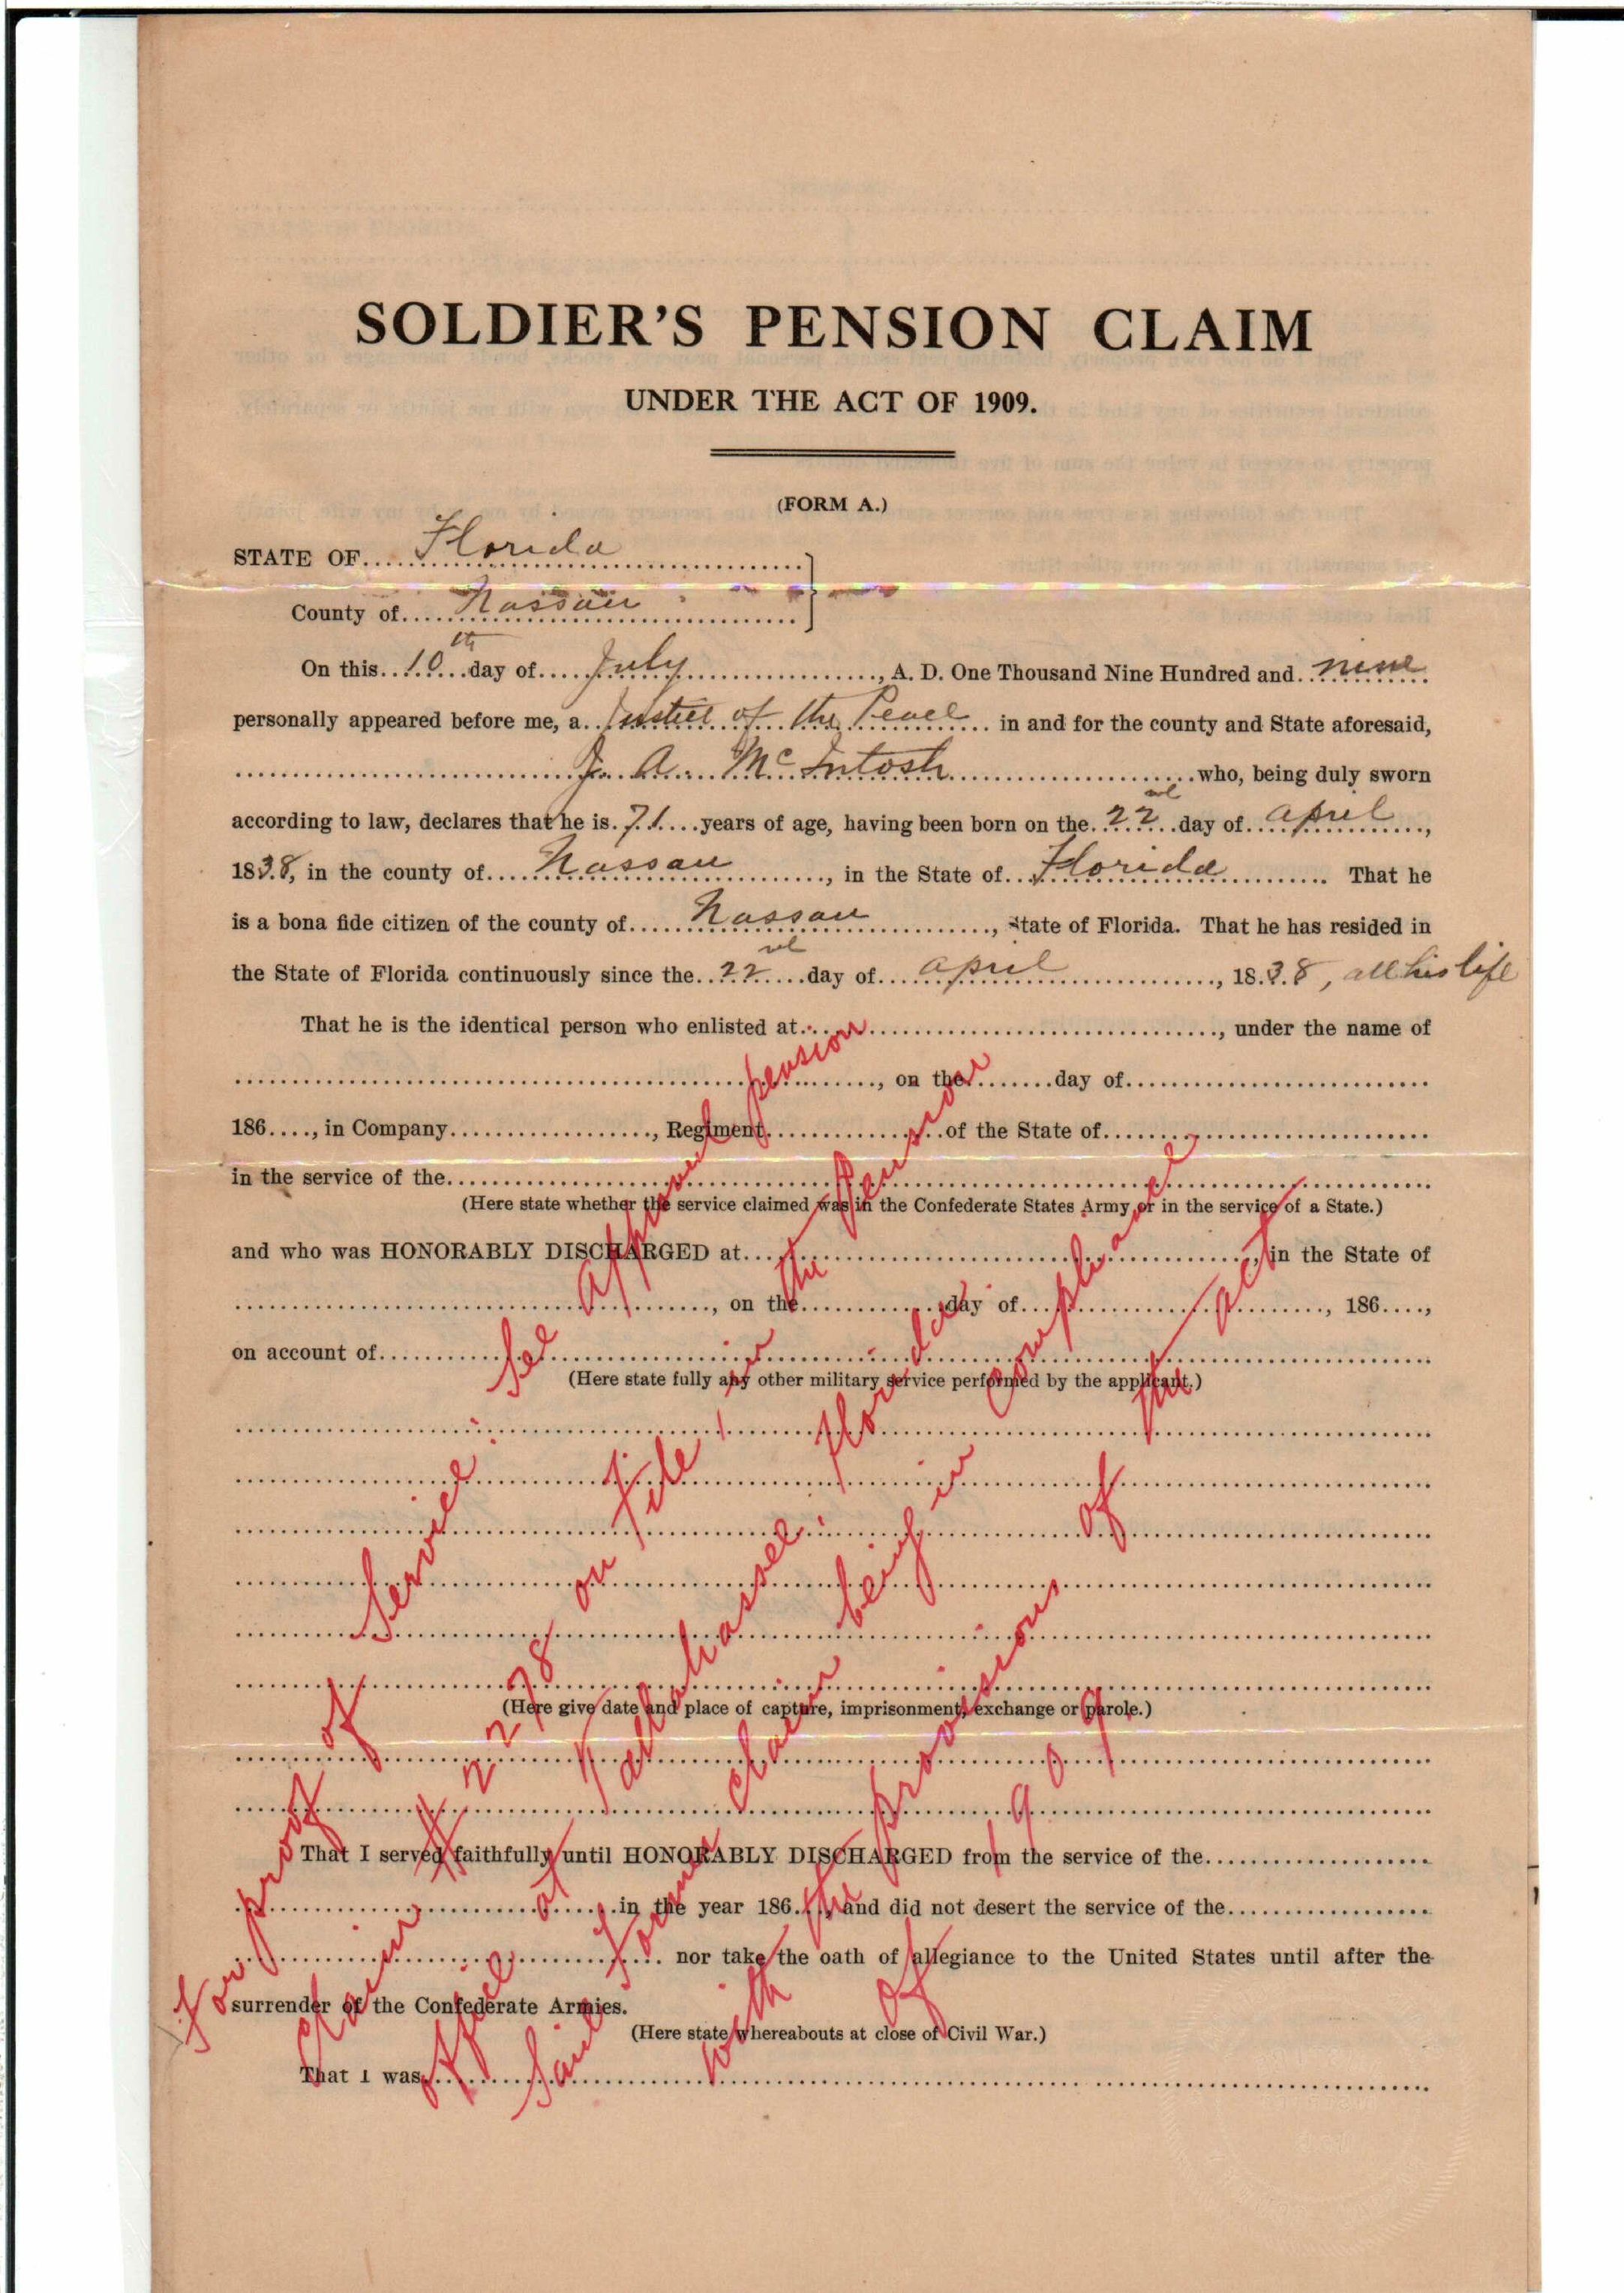 SOLDIER'S PENSION CLAIM
UNDER THE ACT OF 1909.
(FORM A.)
STATE OF Florida
County of Nassau
On this 10th day of July, A. D. One Thousand Nine Hundred and nine
personally appeared before me, a Justice of the Peace in and for the county and State aforesaid,
J. A. McIntosh who, being duly sworn
according to law, declares that he is 71 years of age, having been born on the 22nd day of April,
1838, in the county of Nassau, in the State of Florida. That he
is a bona fide citizen of the county of Nassau, State of Florida. That he has resided in
the State of Florida continuously since the 22nd day of April, 1838, all his life
That he is the identical person who enlisted at, under the name of
, on the day of
186...., in Company, Regiment of the State of
in the service of the
(Here state whether the service claimed was in the Confederate States Army or in the service of a State.)
and who was HONORABLY DISCHARGED at, in the State of
, on the day of, 186....,
on account of
(Here state fully any other military service performed by the applicant.)
(Here give date and place of capture, imprisonment, exchange or parole.)
That I served faithfully until HONORABLY DISCHARGED from the service of the
in the year 186...., and did not desert the service of the
nor take the oath of allegiance to the United States until after the
surrender of the Confederate Armies.
(Here state whereabouts at close of Civil War.)
That I was
For proof of Service: See Approved pension
Claim # 2278 on File in the Pension
Office at Tallahassee, Florida
Said former claim being in compliance
with the provisions of the act
of 1909